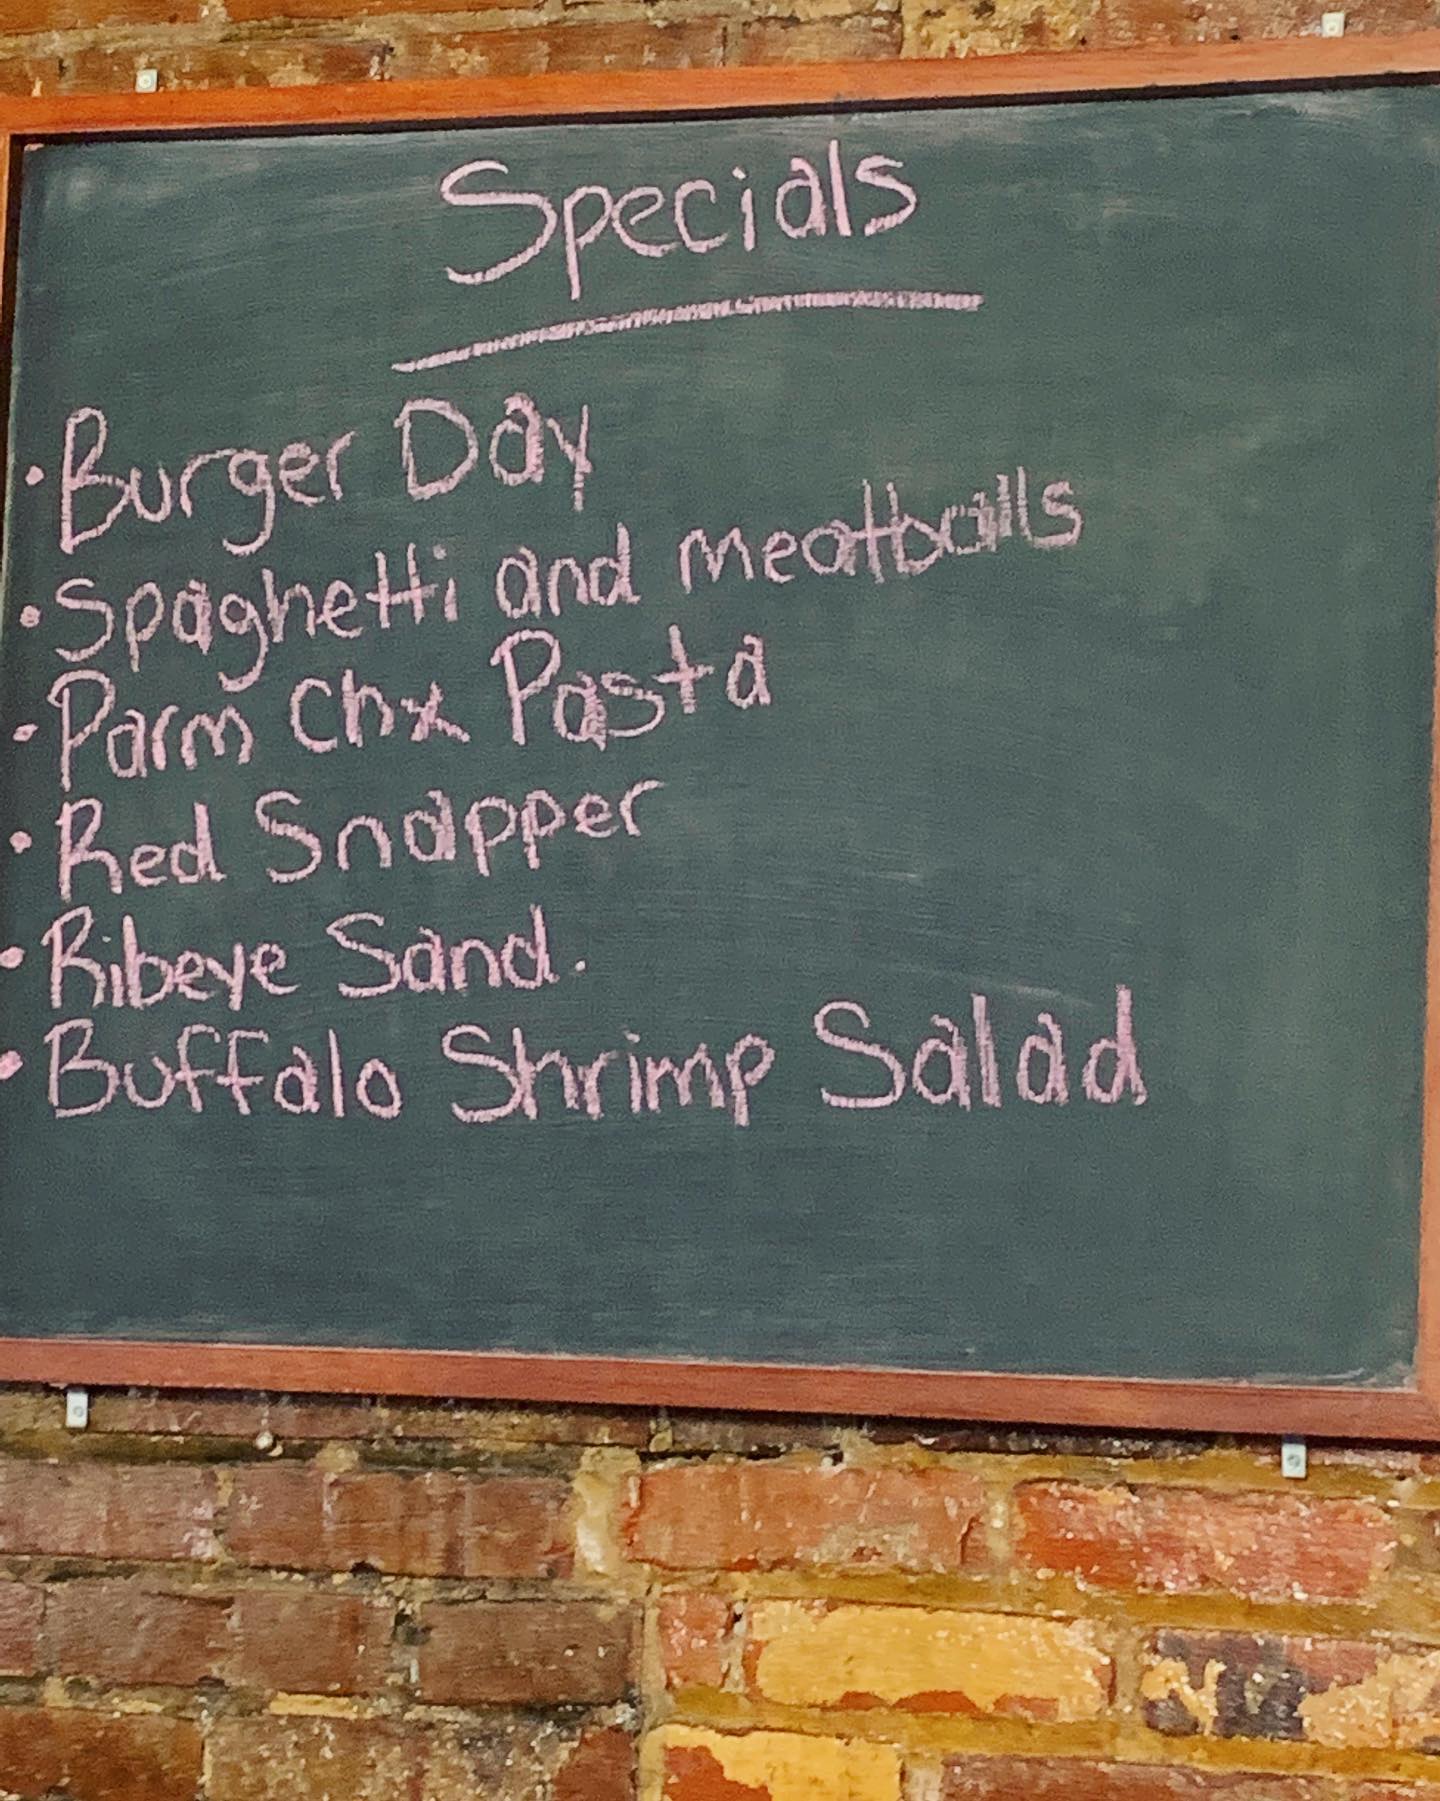 Specials
• Burger Day
• Spaghetti and meatballs
• Parm Chx Pasta
• Red Snapper
• Ribeye Sand.
• Buffalo Shrimp Salad